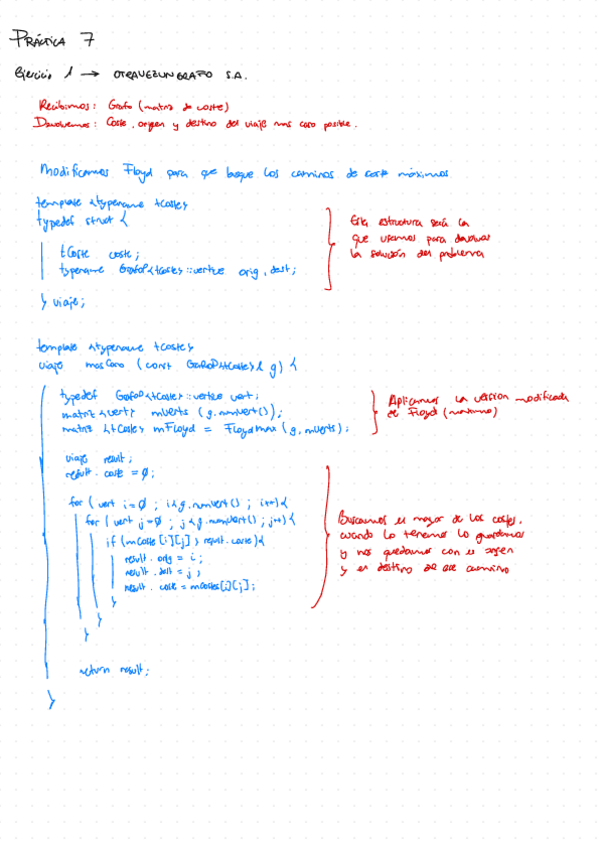 PRÁCTICA 7
Ejercicio 1 → OTRAVEZUNGRAFO S.A.
Recibimos: Grafo (matriz de coste)
Devolvemos: Coste, origen y destino del viaje mas caro posible.
Modificamos Floyd para que busque los caminos de coste máximos
template <typename tCoste>
typedef struct {
tCoste coste;
typename GrafoP<tCoste>::vertice orig, dest;
} viaje;
Esta estructura será la
que usemos para devolver
la solución del problema
template <typename tCoste>
viaje masCaro (const GrafoP<tCoste>& g) {
typedef GrafoP<tCoste>::vertice vert;
matriz <vert> mVerts (g.numVert());
matriz <tCoste> mFloyd = FloydMax (g, mVerts);
Aplicamos la versión modificada
de Floyd (máximo)
viaje result;
result.coste = 0;
for (vert i=0 ; i<g.numVert() ; i++) {
for (vert j=0 ; j<g.numVert() ; j++) {
if (mCoste [i][j] > result.coste) {
result.orig = i;
result.dest = j;
result.coste = mCostes[i][j];
}
}
}
Buscamos el mayor de los costes,
cuando lo tenemos lo guardamos
y nos quedamos con el origen
y el destino de ese camino
return result;
}